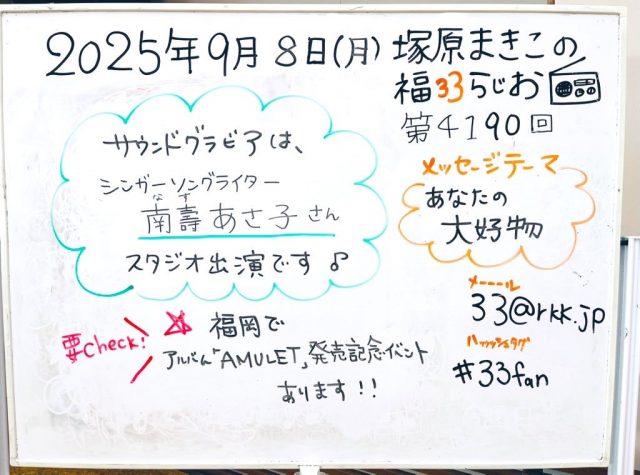 2025年9月8日(月) 塚原まきこの
福33らじお
第4190回
サウンドグラビアは、
シンガーソングライター
なす
南壽あさ子さん
スタジオ出演です♪
メッセージテーマ
あなたの
大好物
メーーール
33@rkk.jp
ハッシュタグ
#33fan
要Check!
☆福岡で
アルバム「AMULET」発売記念イベント
あります!!